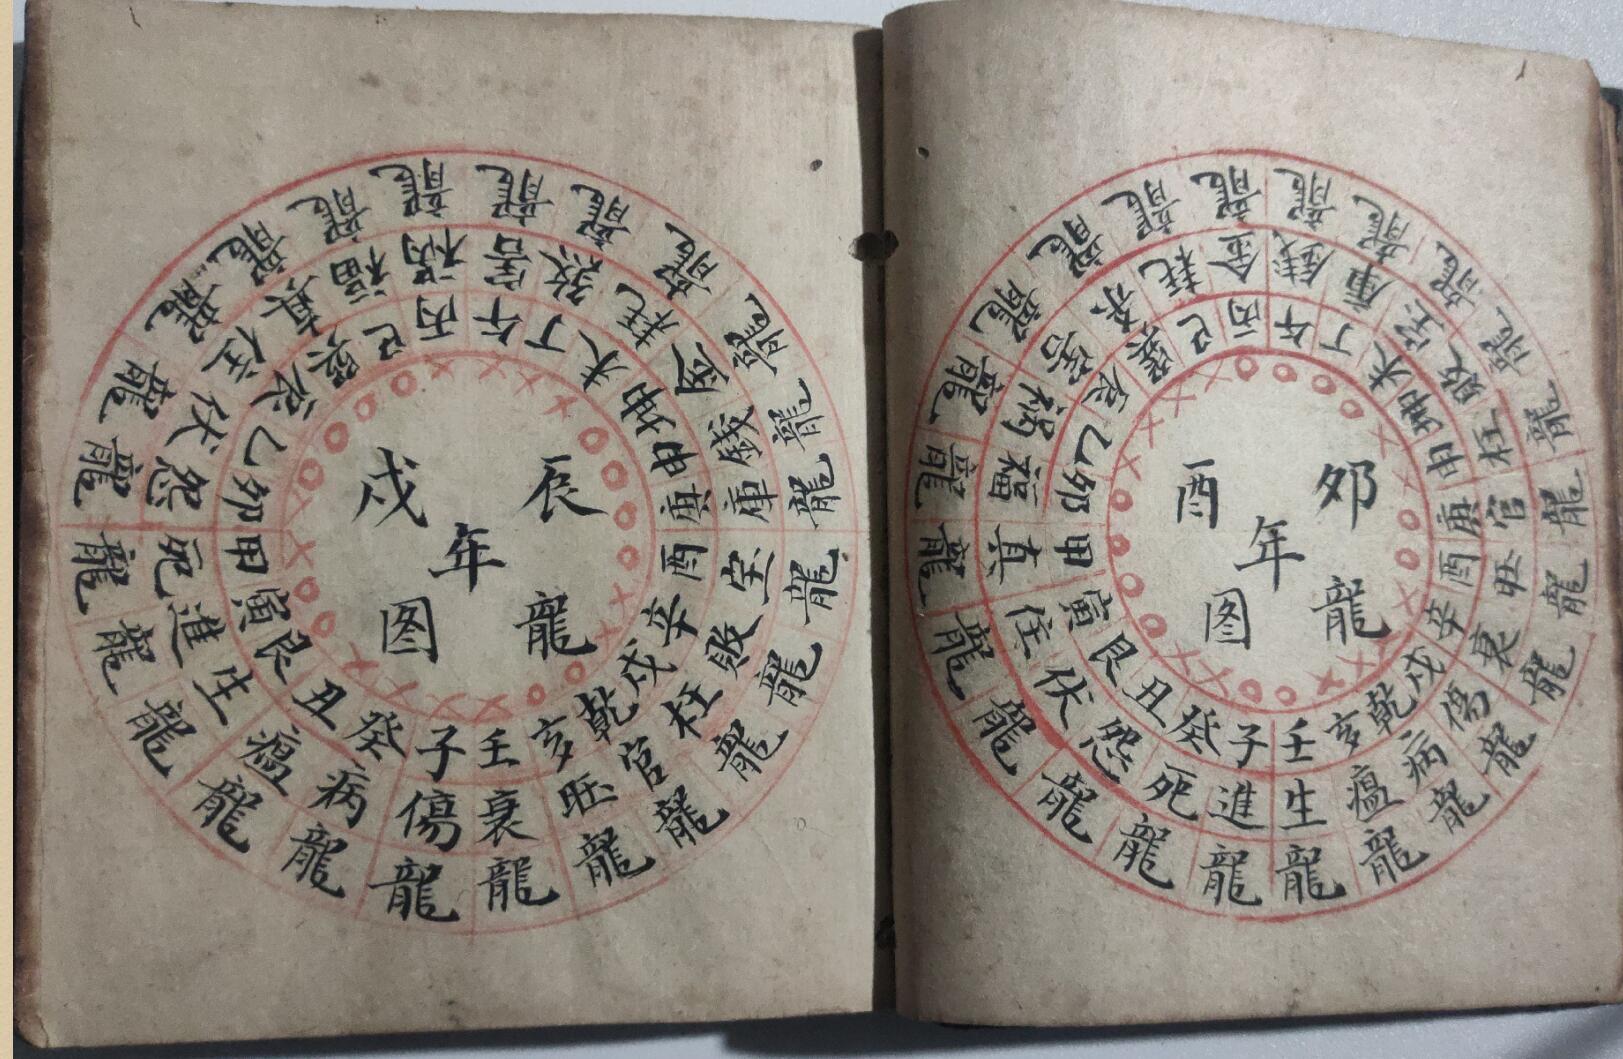 卯酉年龍图
子癸丑艮寅甲卯乙辰巽巳丙午丁未坤申庚酉辛戌乾亥壬
進死怨伏住真福禍害杀耗金錢庫宝敗枉官旺衰傷病瘟生
龍龍龍龍龍龍龍龍龍龍龍龍龍龍龍龍龍龍龍龍龍龍龍龍
辰戌年龍图
子癸丑艮寅甲卯乙辰巽巳丙午丁未坤申庚酉辛戌乾亥壬
傷病瘟生進死怨伏住真福禍害煞耗金錢庫宝敗枉官旺衰
龍龍龍龍龍龍龍龍龍龍龍龍龍龍龍龍龍龍龍龍龍龍龍龍